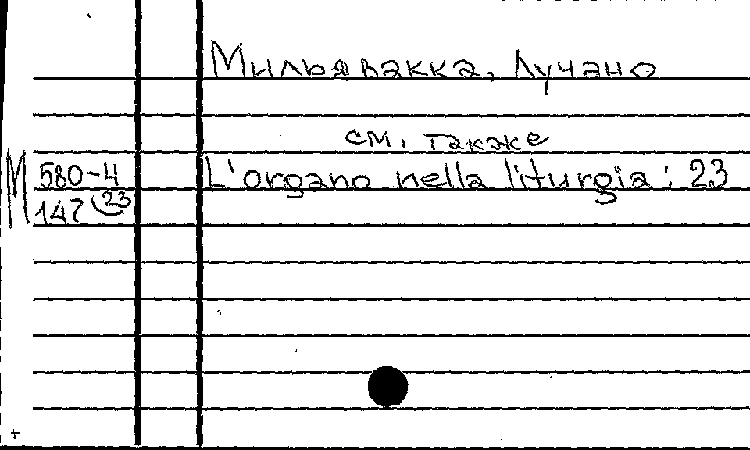 Мильявакка, Лучано
см. также
М 580-4 L'organo nella liturgia: 23
147 23